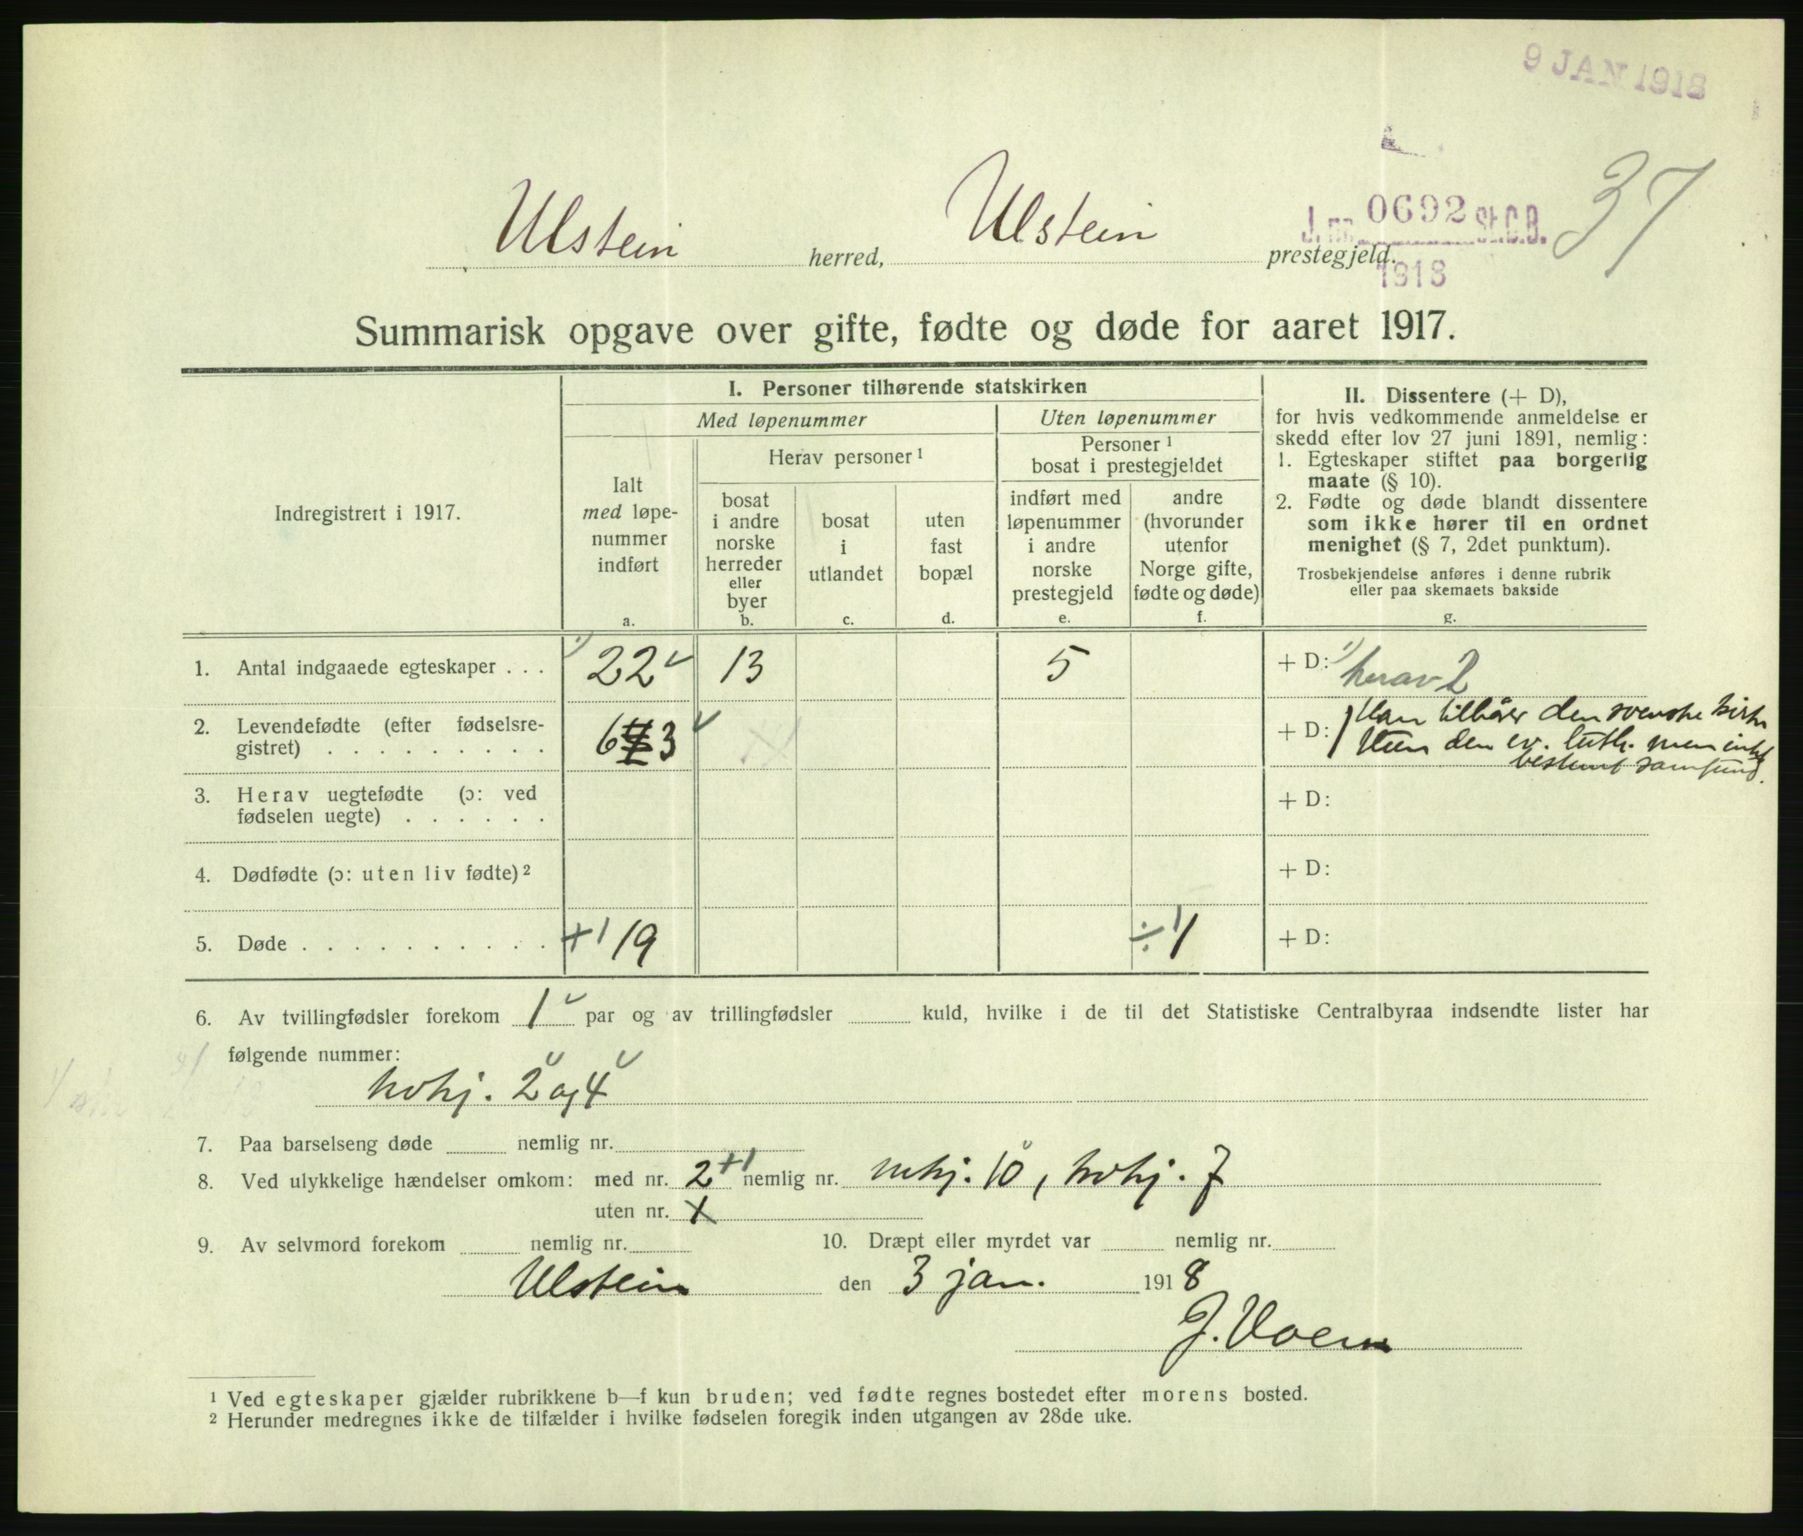 9 JAN 1918
Ulstein herred, Ulstein prestegjeld.
J. nr. 0692 St.C.B.
1918
37
Summarisk opgave over gifte, fødte og døde for aaret 1917.
Indregistrert i 1917.
I. Personer tilhørende statskirken
Med løpenummer
Uten løpenummer
Ialt
med løpe-
nummer
indført
a.
Herav personer ¹
bosat
i andre
norske
herreder
eller
byer
b.
bosat
i
utlandet
c.
uten
fast
bopæl
d.
Personer ¹
bosat i prestegjeldet
indført med
løpenummer
i andre
norske
prestegjeld
e.
andre
(hvorunder
utenfor
Norge gifte,
fødte og døde)
f.
II. Dissentere (+ D),
for hvis vedkommende anmeldelse er
skedd efter lov 27 juni 1891, nemlig:
1. Egteskaper stiftet paa borgerlig
maate (§ 10).
2. Fødte og døde blandt dissentere
som ikke hører til en ordnet
menighet (§ 7, 2det punktum).
Trosbekjendelse anføres i denne rubrik
eller paa skemaets bakside
g.
1. Antal indgaaede egteskaper . . . 1) 22 13 5 + D: 1) herav 2
2. Levendefødte (efter fødselsre-
gistret) . . . . . . . . . 63 + D:
Han tilhører den svenske kirke
Hun den ev. luth. men
bestemt samfund.
3. Herav uegtefødte (ɔ: ved
fødselen uegte) . . . . . . + D:
4. Dødfødte (ɔ: uten liv fødte) ² + D:
5. Døde . . . . . . . . . . +1 19 ÷1 1 + D:
6. Av tvillingfødsler forekom 1 par og av trillingfødsler kuld, hvilke i de til det Statistiske Centralbyraa indsendte lister har
følgende nummer:
kvkj. 2 og 4
7. Paa barselseng døde nemlig nr.
8. Ved ulykkelige hændelser omkom: med nr. 2 +1 nemlig nr. mkj. 10, kvkj. 7
uten nr. 1
9. Av selvmord forekom nemlig nr. 10. Dræpt eller myrdet var nemlig nr.
Ulstein den 3 jan. 1918
¹ Ved egteskaper gjælder rubrikkene b—f kun bruden; ved fødte regnes bostedet efter morens bosted.
² Herunder medregnes ikke de tilfælder i hvilke fødselen foregik inden utgangen av 28de uke.